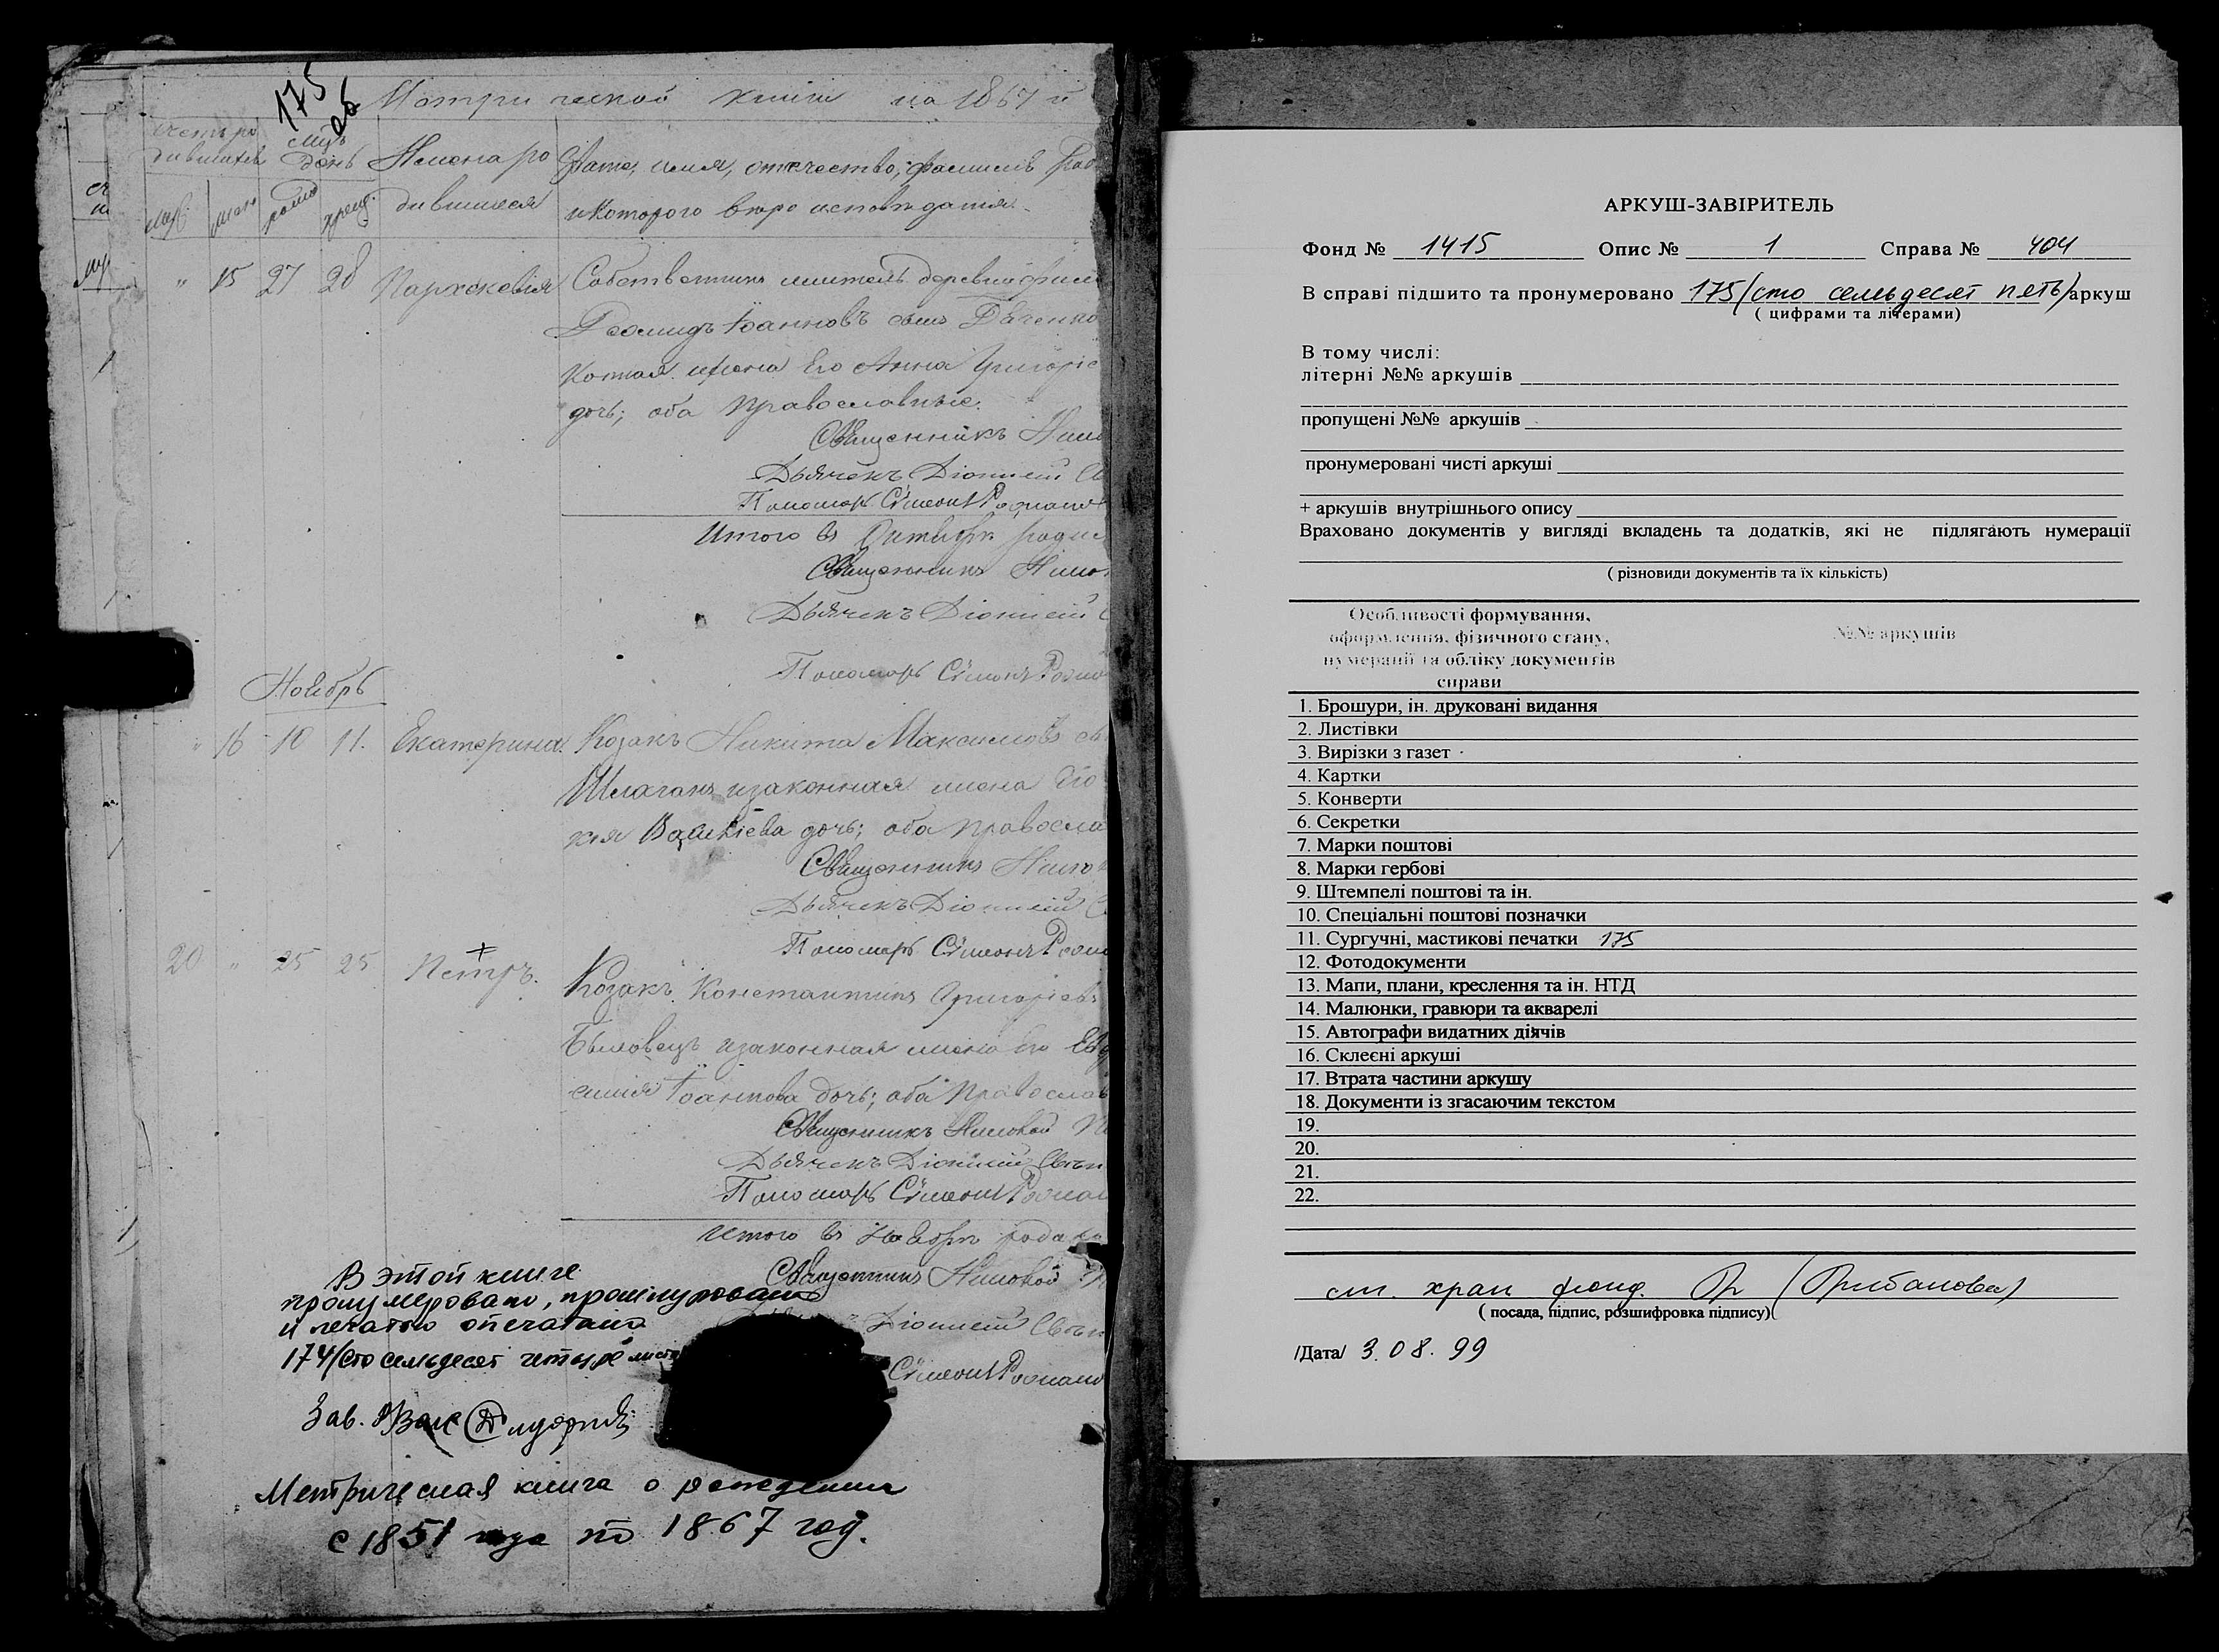 175 об
Метрической книги на 1867 й
счетъ ро дившихся
Мцъ День
Имена ро дившихся
имя, отчество, фамилія
и которого вѣро исповѣданія.
муж.
жен
рож
крещ.
" 15 27 28 Параскевія Собственникъ житель деревни
Іоанновъ сынъ
жена Его Анна Григоріе
дочь; оба православные.
Священникъ
Дьячекъ Діонисій
Пономарь Сѵмеонъ Роман
Итого въ Октябрѣ
Священникъ
Дьячекъ Діонисій
Пономарь Сѵмеонъ
Ноябрь
" 16 10 11. Екатерина. Козакъ Никита Максимовъ
изаконная жена Его
дочь; оба правосла
Священникъ
Дьячекъ Діонисій
Пономарь Сѵмеонъ Рома
20 " 25 25 Петръ. Козакъ Константинъ Григоріевъ
изаконная жена его
Іоаннова дочь; оба православ
Священникъ
Дьячекъ Діонисій
Пономарь Сѵмеонъ Роман
Итого въ Ноябрѣ
Священникъ
Діонисій
Сѵмеонъ Роман
В этой книге
пронумеровано, прошнуровано
и печатью опечатано
174/сто семьдесят четыре листа
Зав.
Метрическая книга о рождении
с 1851 года по 1867 год.
АРКУШ-ЗАВІРИТЕЛЬ
Фонд № 1415 Опис № 1 Справа № 404
В справі підшито та пронумеровано 175/сто семьдесят пять/аркуш
( цифрами та літерами)
В тому числі:
літерні №№ аркушів
пропущені №№ аркушів
пронумеровані чисті аркуші
+ аркушів внутрішнього опису
Враховано документів у вигляді вкладень та додатків, які не підлягають нумерації
( різновиди документів та їх кількість)
Особливості формування,
оформлення, фізичного стану,
нумерації та обліку документів
справи
№№ аркушів
1. Брошури, ін. друковані видання
2. Листівки
3. Вирізки з газет
4. Картки
5. Конверти
6. Секретки
7. Марки поштові
8. Марки гербові
9. Штемпелі поштові та ін.
10. Спеціальні поштові позначки
11. Сургучні, мастикові печатки 175
12. Фотодокументи
13. Мапи, плани, креслення та ін. НТД
14. Малюнки, гравюри та акварелі
15. Автографи видатних діячів
16. Склеєні аркуші
17. Втрата частини аркушу
18. Документи із згасаючим текстом
19.
20.
21.
22.
ст. хран фонд.
( посада, підпис, розшифровка підпису)
/Дата/ 3.08.99